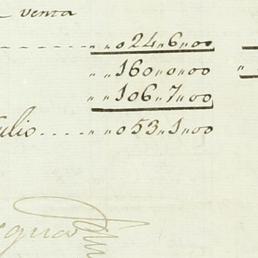 venta
..... „ „ 024 „ 6 „ 00
„ „ 160 „ 0 „ 00
„ „ 106 „ 7 „ 00
ulio..... „ 053 „ 1 „ 00